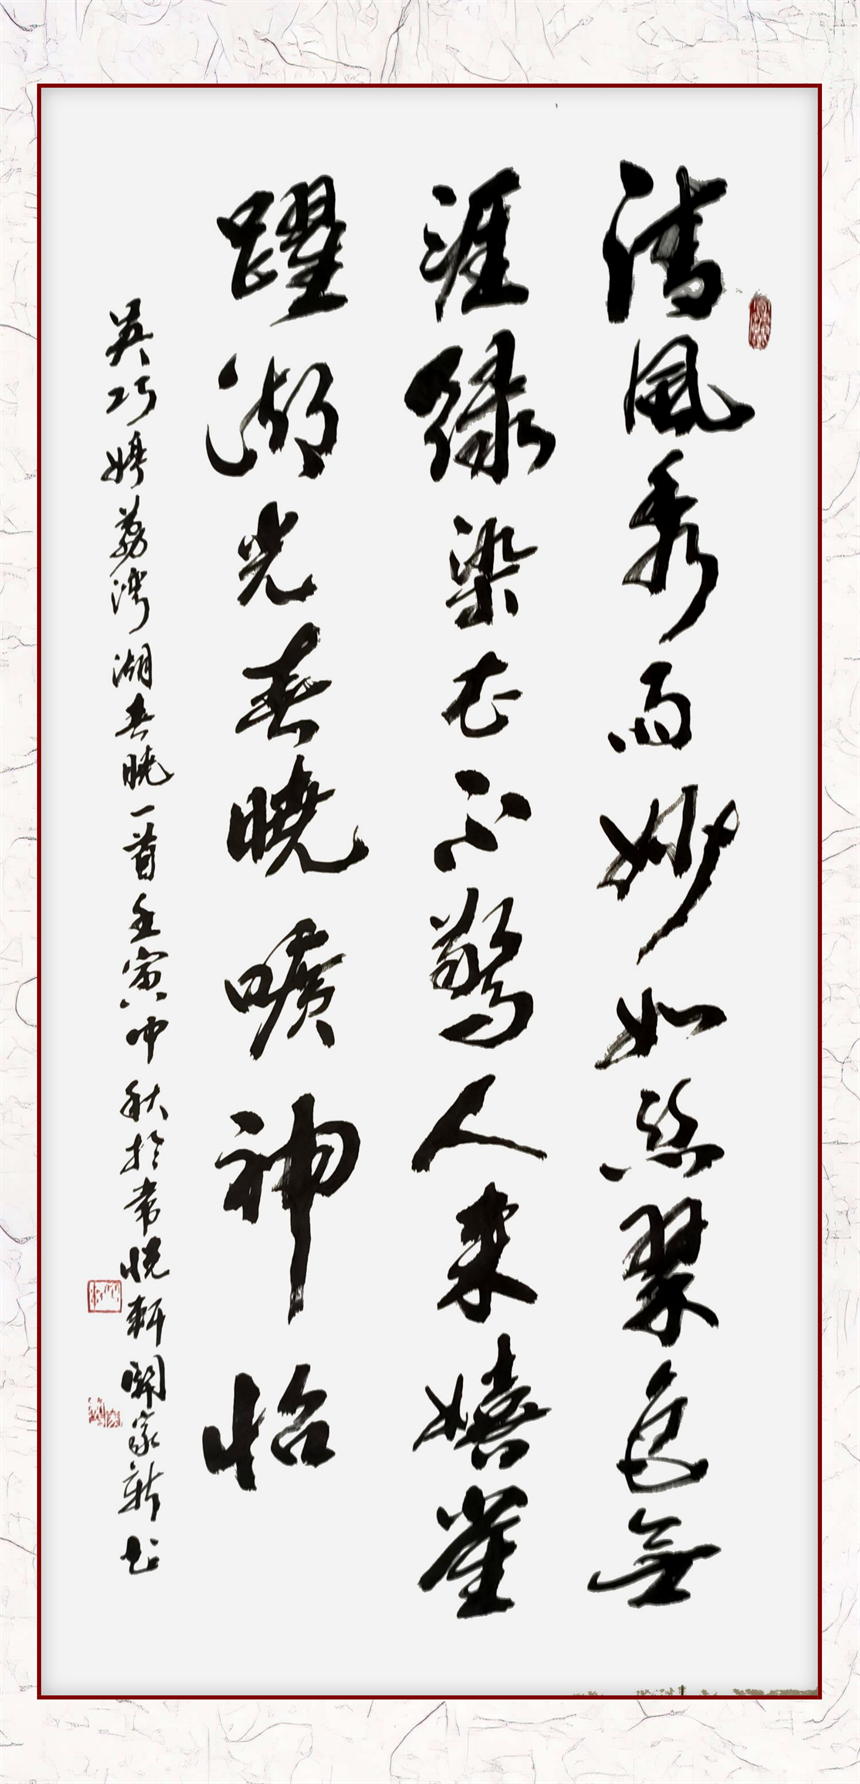 清風秀雨妙如絲翠色無
涯綠染不驚人来嬉雀
躍湖光春曉曠神怡
吳巧婷荔灣湖春曉一首壬寅中秋於常悅軒關家新书